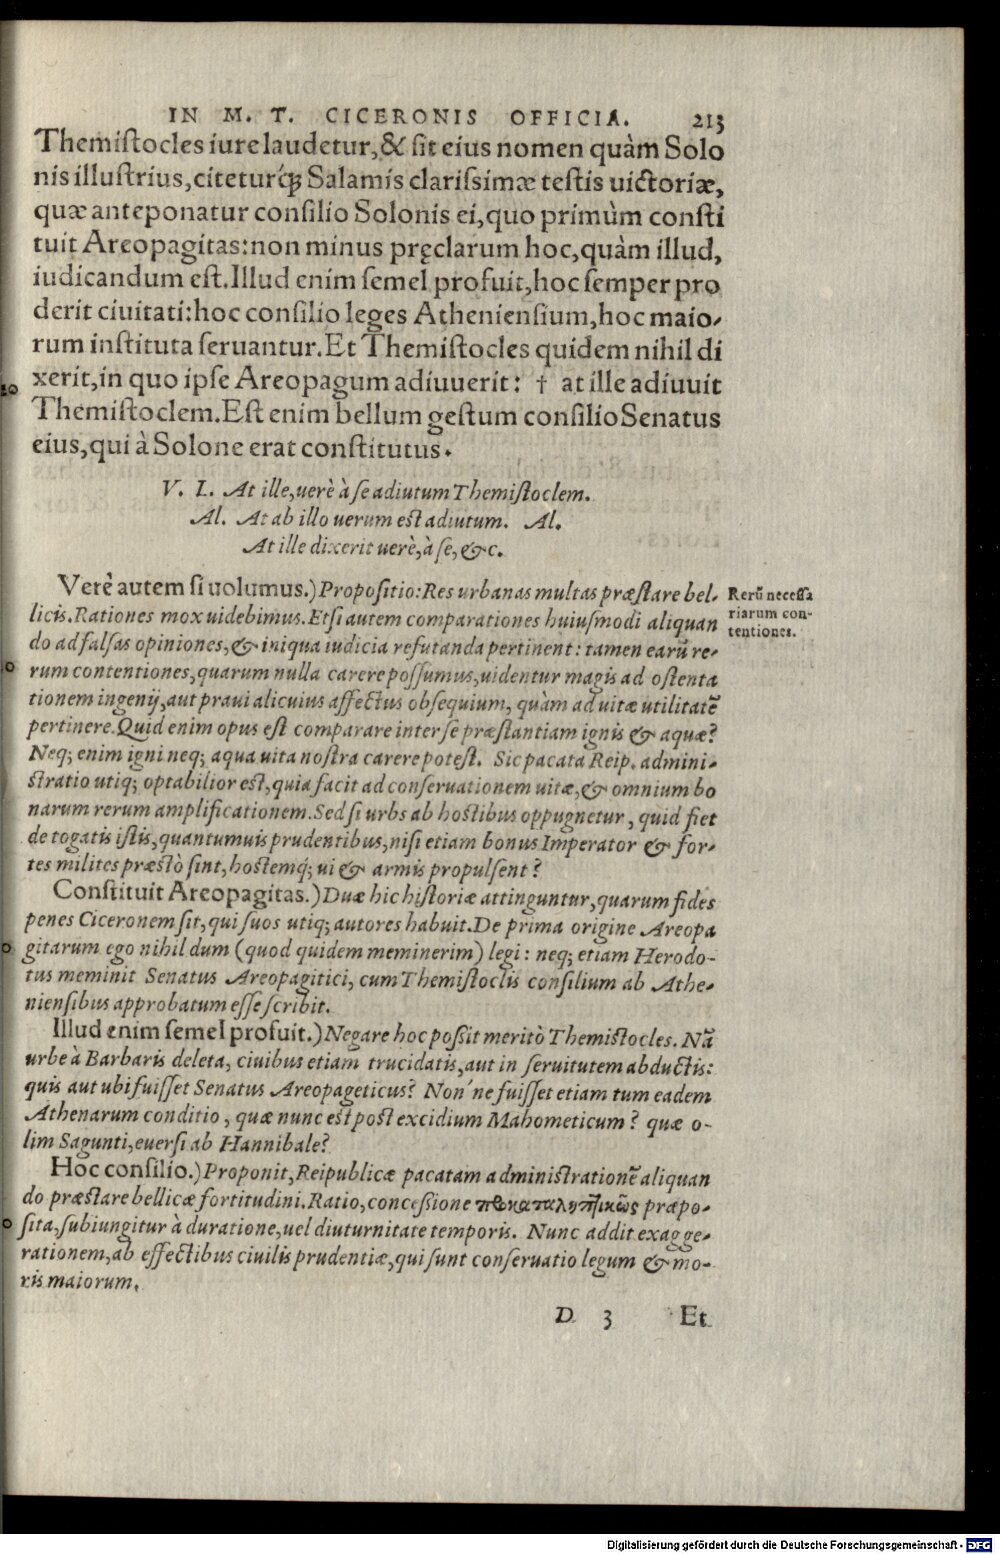 IN M. T. CICERONIS OFFICIA. 213
Themistocles iure laudetur, & sit eius nomen quàm Solo
nis illustrius, citeturq́; Salamis clarissimæ testis uictoriæ,
quæ anteponatur consilio Solonis ei, quo primùm consti
tuit Areopagitas: non minus pręclarum hoc, quàm illud,
iudicandum est. Illud enim semel profuit, hoc semper pro
derit ciuitati: hoc consilio leges Atheniensium, hoc maio-
rum instituta seruantur. Et Themistocles quidem nihil di
xerit, in quo ipse Areopagum adiuuerit: † at ille adiuuit
Themistoclem. Est enim bellum gestum consilio Senatus
eius, qui à Solone erat constitutus.
V. L. At ille, uerè à se adiutum Themistoclem.
Al. At ab illo uerum est adiutum. Al.
At ille dixerit uerè, à se, &c.
Verè autem si uolumus.) Propositio: Res urbanas multas præstare bel-
licis. Rationes mox uidebimus. Etsi autem comparationes huiusmodi aliquan
do ad falsas opiniones, & iniqua iudicia refutanda pertinent: tamen earũ re-
rum contentiones, quarum nulla carere possumus, uidentur magis ad ostenta
tionem ingenij, aut praui alicuius affectus obsequium, quàm ad uitæ utilitatẽ
pertinere. Quid enim opus est comparare inter se præstantiam ignis & aquæ?
Neq; enim igni neq; aqua uita nostra carere potest. Sic pacata Reip. admini-
stratio utiq; optabilior est, quia facit ad conseruationem uitæ, & omnium bo
narum rerum amplificationem. Sed si urbs ab hostibus oppugnetur, quid fiet
de togatis istis, quantumuis prudentibus, nisi etiam bonus Imperator & for-
tes milites præstò sint, hostemq́; ui & armis propulsent?
Rerũ necessa
riarum con-
tentiones.
Constituit Areopagitas.) Duæ hic historiæ attinguntur, quarum fides
penes Ciceronem sit, qui suos utiq; autores habuit. De prima origine Areopa
gitarum ego nihil dum (quod quidem meminerim) legi: neq; etiam Herodo-
tus meminit Senatus Areopagitici, cum Themistoclis consilium ab Athe-
niensibus approbatum esse scribit.
Illud enim semel profuit.) Negare hoc possit meritò Themistocles. Nã
urbe à Barbaris deleta, ciuibus etiam trucidatis, aut in seruitutem abductis:
quis aut ubi fuisset Senatus Areopageticus? Non'ne fuisset etiam tum eadem
Athenarum conditio, quæ nunc est post excidium Mahometicum? quæ o-
lim Sagunti, euersi ab Hannibale?
Hoc consilio.) Proponit, Reipublicæ pacatam administrationẽ aliquan
do præstare bellicæ fortitudini. Ratio, concessione præpo-
sita, subiungitur à duratione, uel diuturnitate temporis. Nunc addit exagge-
rationem, ab effectibus ciuilis prudentiæ, qui sunt conseruatio legum & mo-
ris maiorum.
D 3 Et
Digitalisierung gefördert durch die Deutsche Forschungsgemeinschaft - DFG